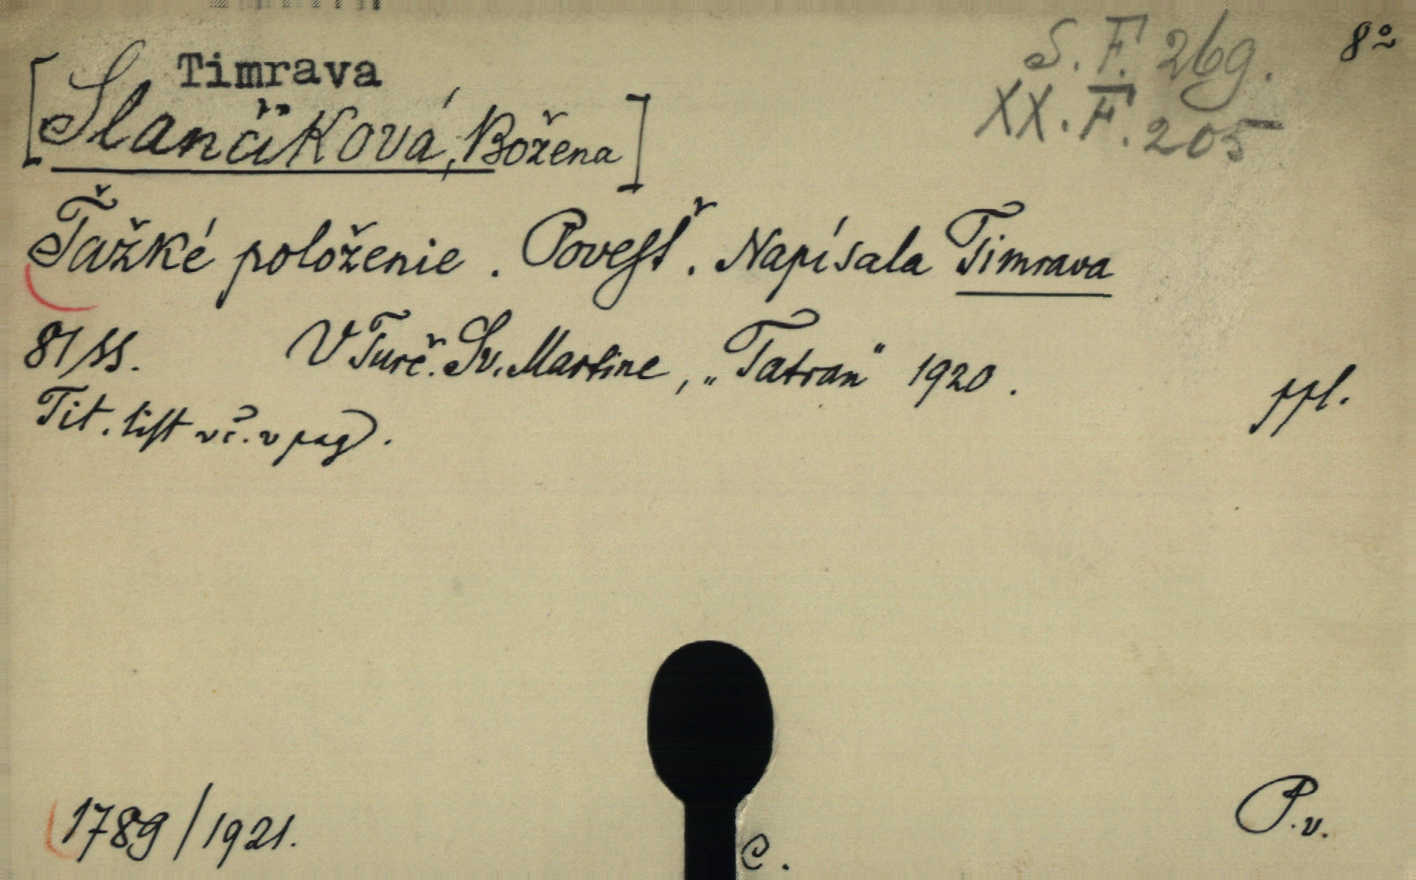 Timrava
S. F. 269.
8°
[Slančíková, Božena]
XX. F. 205
Ťažké položenie. Povesť. Napísala Timrava
81/SS. V Turč. Sv. Martine, „Tatran" 1920.
ppl.
Tit. list vč. v pag.
1789/1921.
C.
P.v.